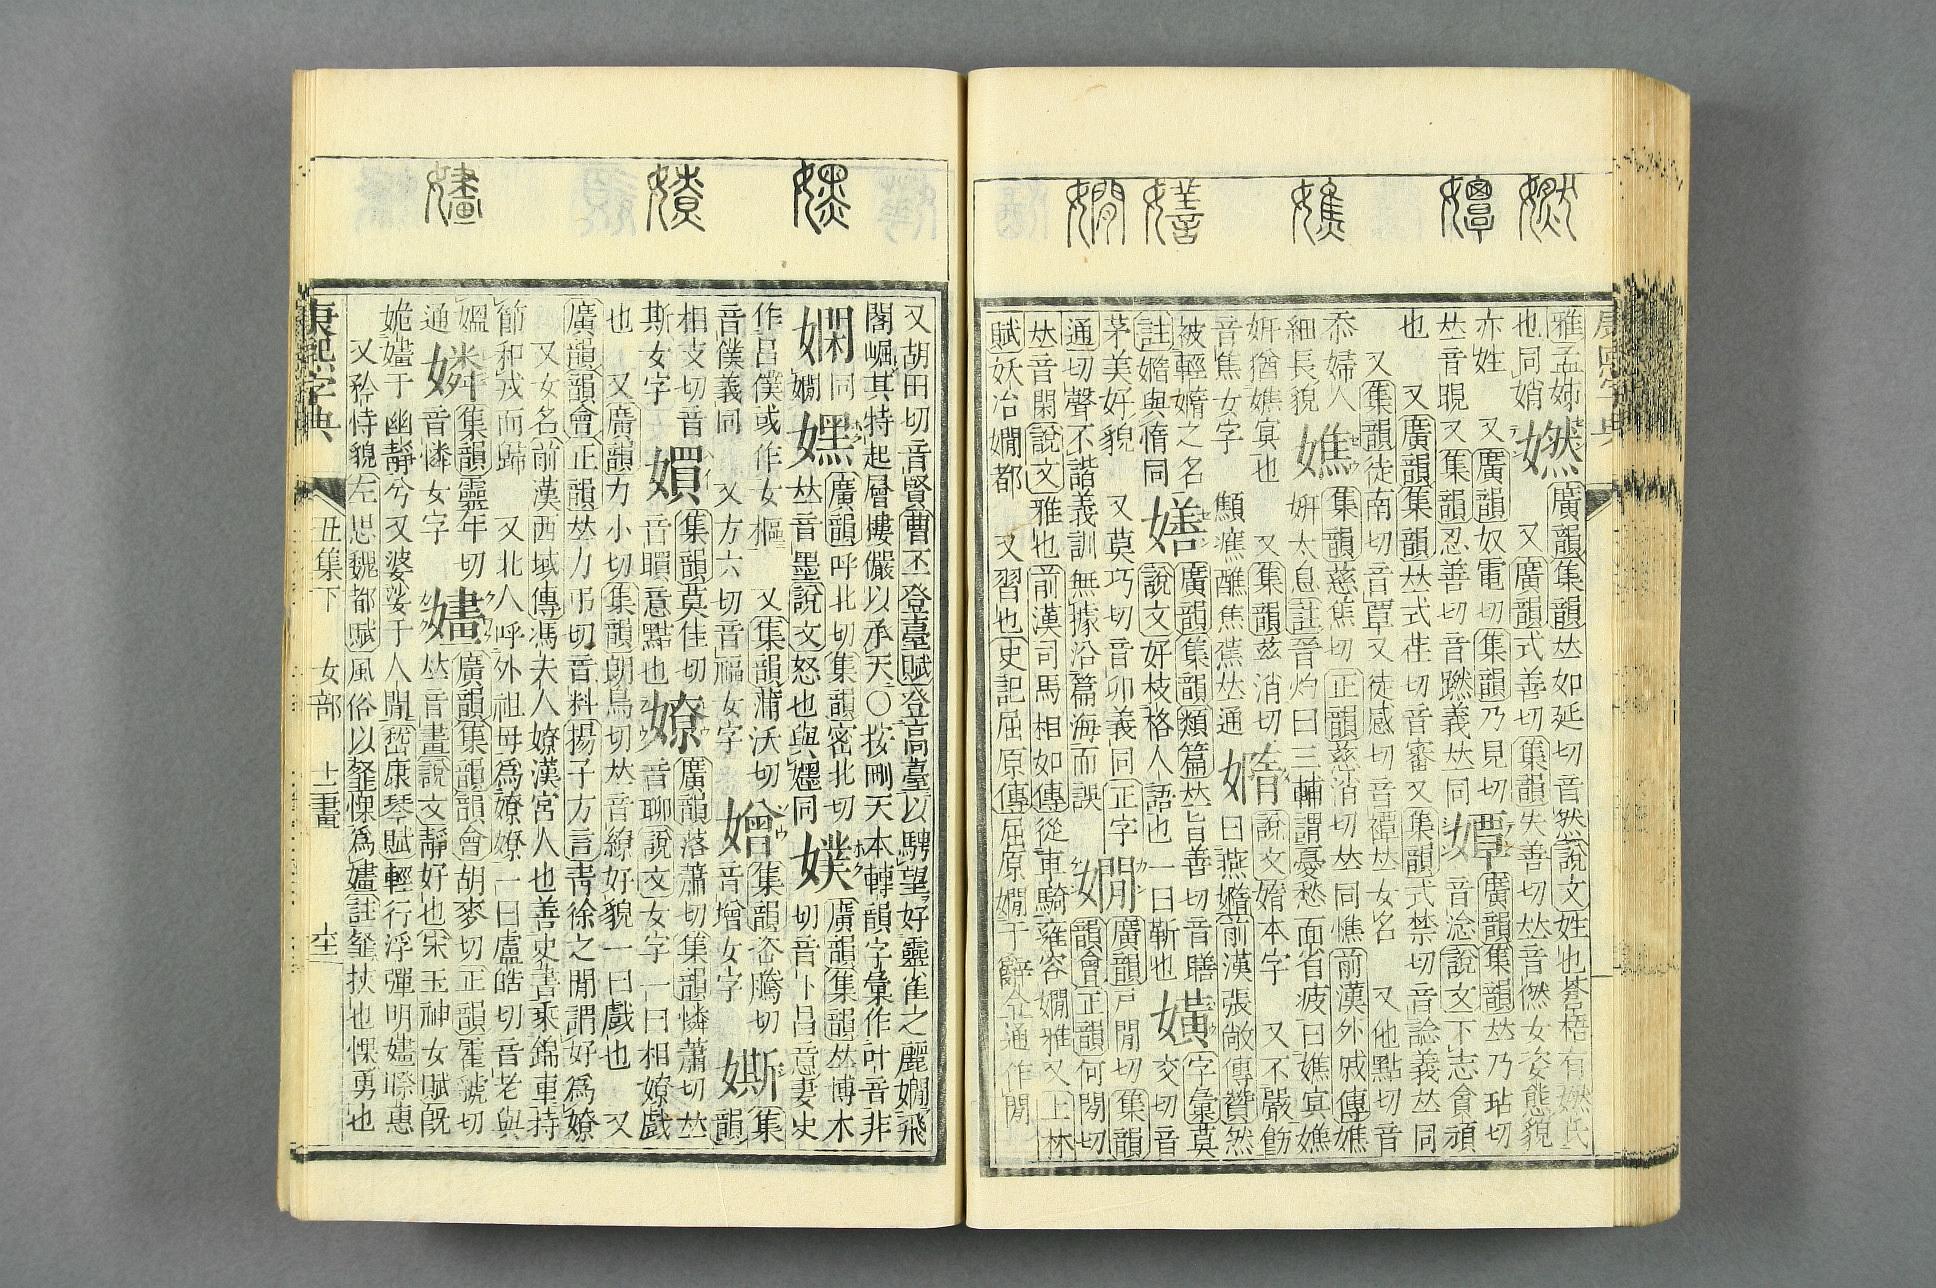 㜣氏
雅孟姊㜣廣韻集韻𠀤如延切音然說文姓也蒼梧有㜣氏
也同娋 又廣韻式善切集韻失善切𠀤音 女姿態貌
亦姓 又廣韻奴電切集韻乃見切㜤廣韻集韻𠀤乃玷切
𠀤音晛又集韻忍善切音蹨義𠀤同 音淰說文下志貪頑
也 又廣韻集韻𠀤式荏切音審又集韻式禁切音諗義𠀤同
又集韻徒南切音覃又徒感切音禫𠀤女名 又他點切音
忝婦人嫶集韻慈焦切正韻慈消切𠀤同憔前漢外戚傳嫶
細長貌 妍太息註晉灼曰三輔謂憂愁面省瘦曰嫶冥嫶
妍猶嫶冥也 又集韻茲消切嫷說文嫷本字 又不嚴飭
音焦女字 顦癄醮焦蕉𠀤通 曰燕嫷前漢張敞傳贊然
被輕媠之名嫸廣韻集韻類篇𠀤旨善切音膳 字彙莫
註媠與惰同 說文好枝格人語也一曰靳也 交切音
茅美好貌 又莫巧切音卯義同正字嫺廣韻戸閒切集韻
通切聲不諧義訓無據沿篇海而誤 韻會正韻何閒切
𠀤音閑說文雅也前漢司馬相如傳從車騎雍容嫺雅又上林
賦妖冶嫺都 又習也史記屈原傳屈原嫺于辭令通作閒
又胡田切音賢曹丕登臺賦登高臺以騁望好靈雀之麗嫺飛
閣崛其特起層樓儼以承天○按刪天本轉韻字彙作叶音非
嫻同嫼廣韻呼北切集韻密北切 廣韻集韻𠀤博木
嫺 𠀤音墨說文怒也與嬺同 切音卜昌意妻史
作昌僕或作女樞 又集韻蒲沃切 集韻咨騰切 集
音僕義同 又方六切音福女字 音增女字 韻
相支切音 集韻莫佳切嫽廣韻落蕭切集韻憐蕭切𠀤
斯女字 音瞑意黠也 音聊說文女字一曰相嫽戲
也 又廣韻力小切集韻朗鳥切𠀤音繚好貌一曰戲也 又
廣韻韻會正韻𠀤力弔切音料揚子方言靑徐之閒謂好爲嫽
又女名前漢西域傳馮夫人嫽漢宮人也善史書乘錦車持
節和戎而歸 又北人呼外祖母爲嫽嫽一曰盧皓切音老與
媼 集韻靈年切嫿廣韻集韻韻會胡麥切正韻霍虢切
通 音憐女字 𠀤音畫說文靜好也宋玉神女賦旣
姽嫿于幽靜兮又婆娑于人閒嵆康琴賦輕行浮彈明嫿㬠惠
又矜恃貌左思魏都賦風俗以韰惈爲嫿註韰狹也惈勇也
康熙字典 丑集下 女部 十二畫